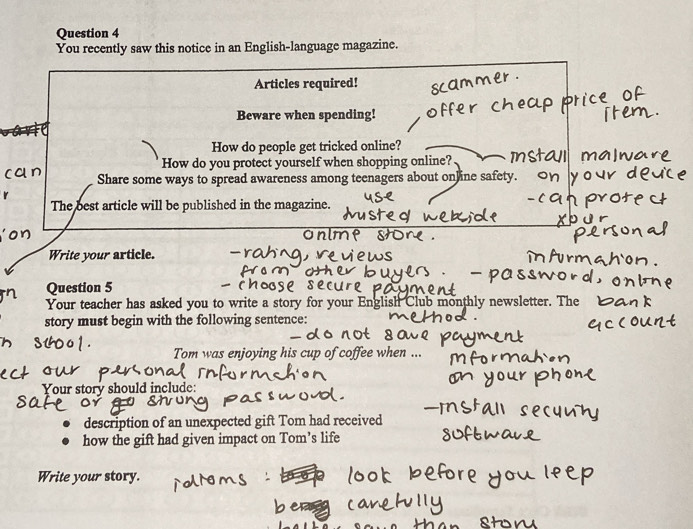 Question 4
You recently saw this notice in an English-language magazine.
Articles required!
scammer.
Beware when spending!
offer cheap price of
item.
How do people get tricked online?
can
How do you protect yourself when shopping online?
install malware
Share some ways to spread awareness among teenagers about online safety.
on your device
The best article will be published in the magazine.
use
trusted webside
online store.
- can protect
your
personal
information.
- password, online
bank
account
Write your article.
- rating, reviews
from other buyers.
- choose secure payment
method.
Question 5
Your teacher has asked you to write a story for your English Club monthly newsletter. The
story must begin with the following sentence:
school.
- do not save payment
information
on your phone
Tom was enjoying his cup of coffee when ...
ect our personal information
Your story should include:
safe or strong password.
- install security
software
• description of an unexpected gift Tom had received
• how the gift had given impact on Tom's life
Write your story.
idioms : look before you leep
carefully
than story